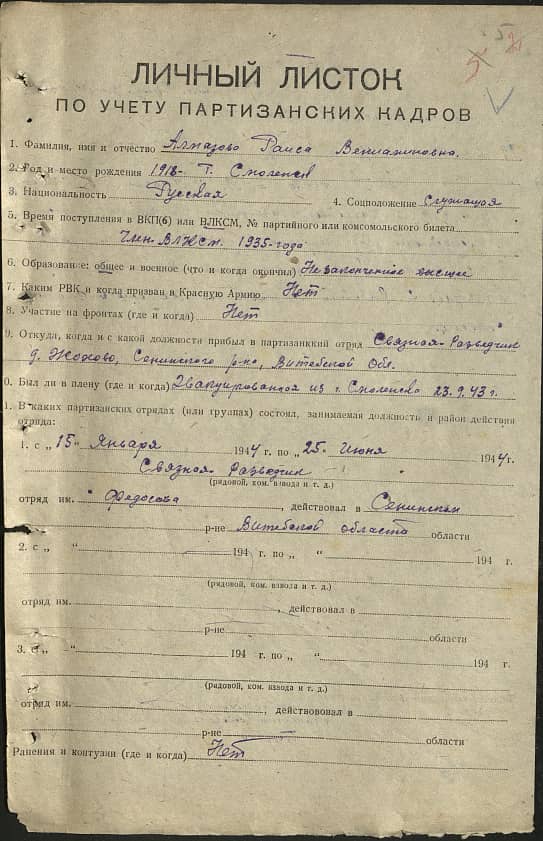 ЛИЧНЫЙ ЛИСТОК
ПО УЧЕТУ ПАРТИЗАНСКИХ КАДРОВ
1. Фамилия, имя и отчество Алмазова Раиса Вениаминовна.
2. Год и место рождения 1918 г. Смоленск
3. Национальность Русская 4. Соцположение Служащая
5. Время поступления в ВКП(б) или ВЛКСМ, № партийного или комсомольского билета
Член ВЛКСМ 1935 года
6. Образование: общее и военное (что и когда окончил) Незаконченное высшее
7. Каким РВК и когда призван в Красную Армию Нет
8. Участие на фронтах (где и когда) Нет
9. Откуда, когда и с какой должности прибыл в партизанский отряд Связная-Разведчик
д. Жохово, Сенинского р-на, Витебской Обл.
0. Был ли в плену (где и когда) Эвакуированная из г. Смоленска 23.9.43 г.
1. В каких партизанских отрядах (или группах) состоял, занимаемая должность и район действия
отряда:
1. с „15" Января 1944 г. по „25" Июня 1944 г.
Связная-Разведчик
(рядовой, ком. взвода и т. д.)
отряд им. Федосова, действовал в Сенинском
р-не Витебской области области
2. с „ " 194 г. по „ " 194 г.
(рядовой, ком. взвода и т. д.)
отряд им. , действовал в
р-не области
3. с „ " 194 г. по „ " 194 г.
(рядовой, ком. взвода и т. д.)
отряд им. , действововал в
р-не области
Ранения и контузии (где и когда) Нет